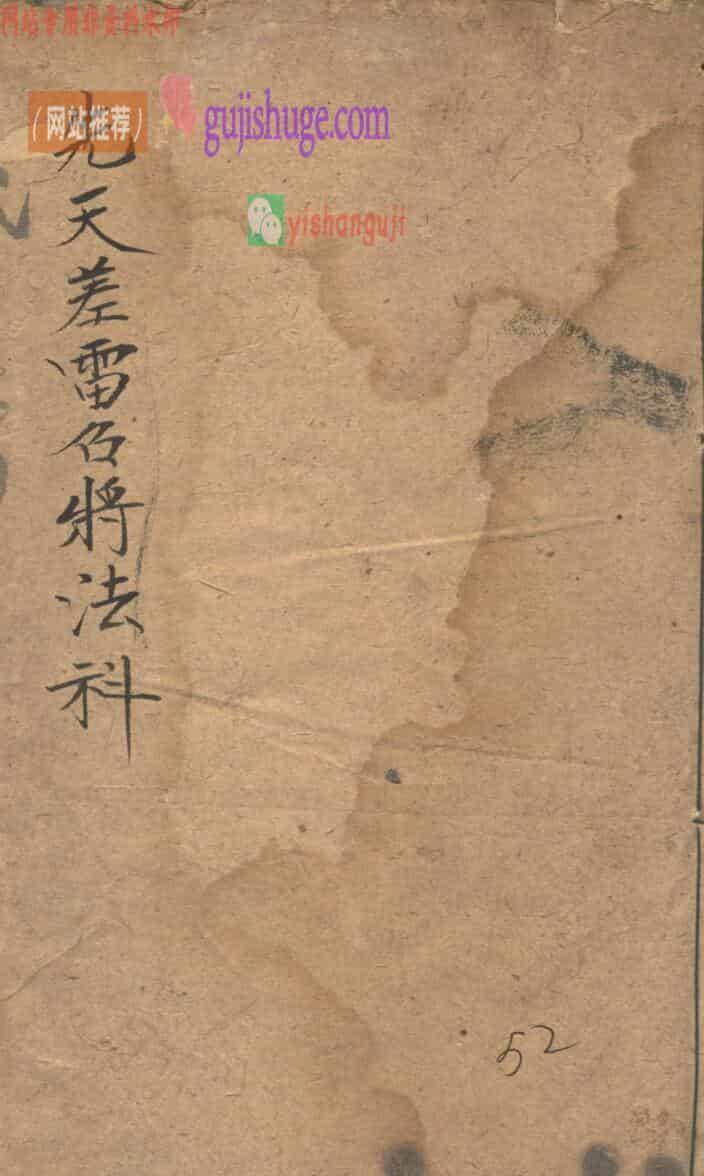 网站专用非卖料水印
（网站推荐）
gujishuge.com
yishanguji
九天差雷召将法科
52